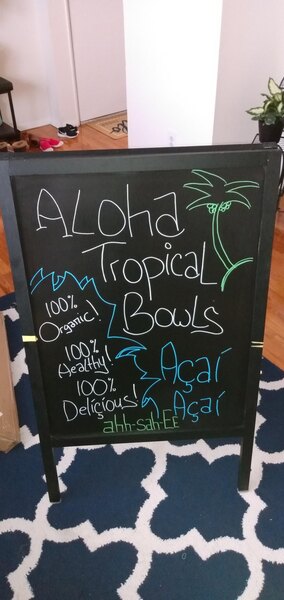 ALoha
Tropical
Bowls
100%
Organic!
100%
Healthy!
100%
Delicious!
Açaí
Açaí
ahh-sah-EE